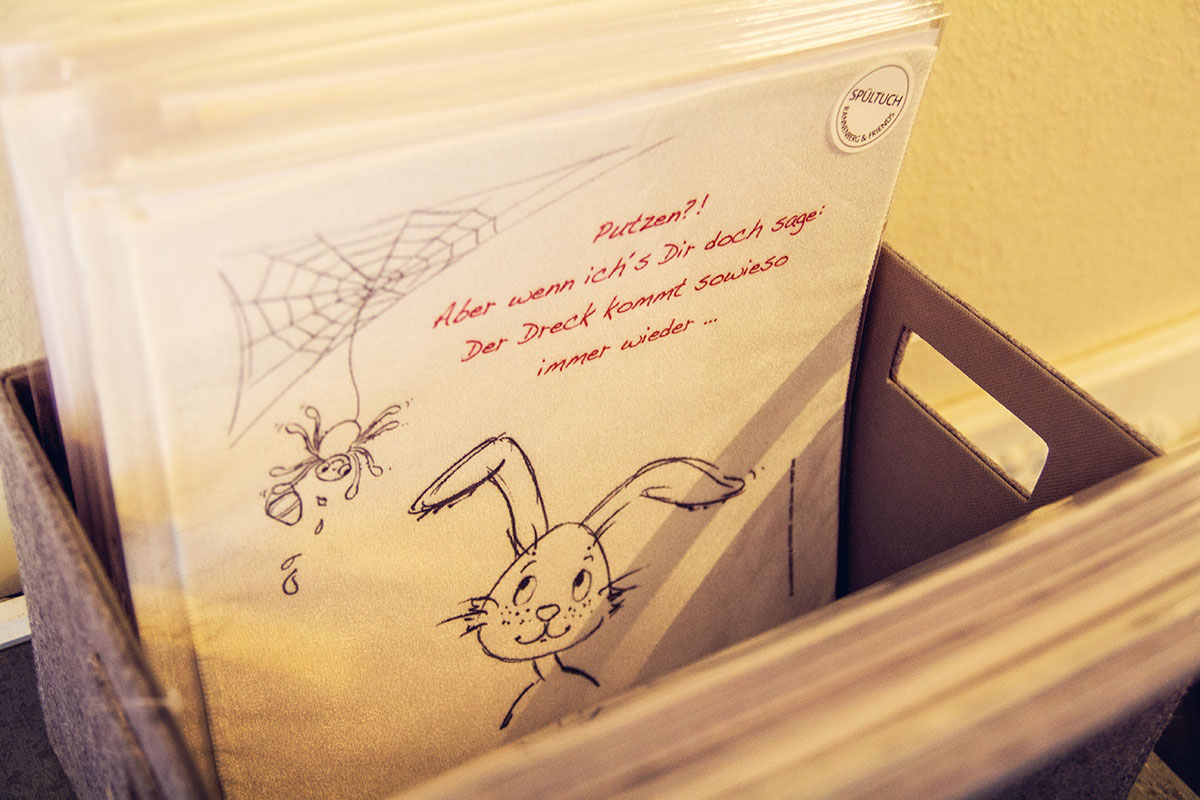 SPÜLTUCH
RANNENBERG & FRIENDS
Putzen?!
Aber wenn ich's Dir doch sage:
Der Dreck kommt sowieso
immer wieder ...